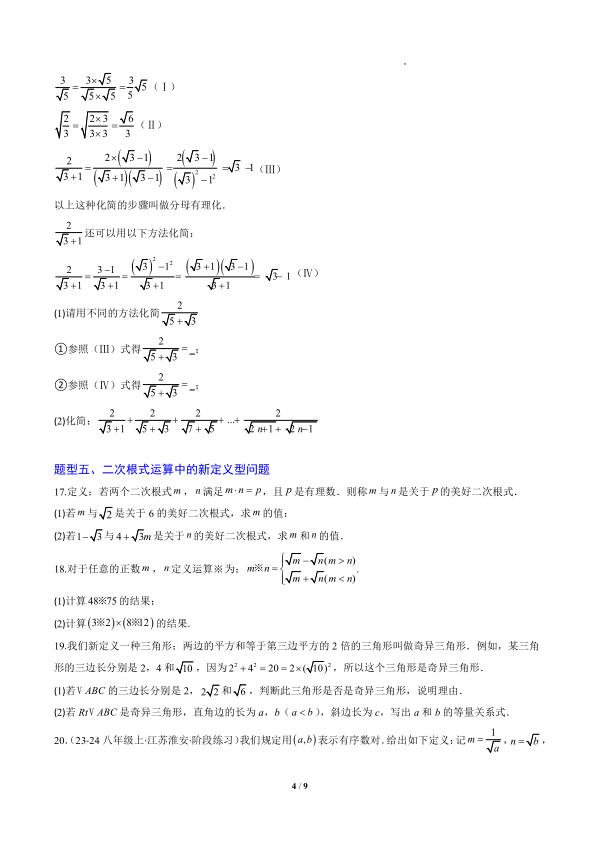 3/√5 = 3×√5/√5×√5 = 3/5 √5（Ⅰ）
√(2/3) = √(2×3/3×3) = √6/3（Ⅱ）
2/(√3+1) = 2×(√3−1)/(√3+1)(√3−1) = 2(√3−1)/((√3)²−1²) = √3−1（Ⅲ）
以上这种化简的步骤叫做分母有理化．
2/(√3+1)还可以用以下方法化简：
2/(√3+1) = (3−1)/(√3+1) = ((√3)²−1²)/(√3+1) = (√3+1)(√3−1)/(√3+1) = √3−1（Ⅳ）
(1)请用不同的方法化简2/(√5+√3)
①参照（Ⅲ）式得2/(√5+√3)=_；
②参照（Ⅳ）式得2/(√5+√3)=_；
(2)化简：2/(√3+1)+2/(√5+√3)+2/(√7+√5)+...+2/(√2n+1+√2n−1)
题型五、二次根式运算中的新定义型问题
17.定义：若两个二次根式m，n满足m·n=p，且p是有理数．则称m与n是关于p的美好二次根式．
(1)若m与√2是关于6的美好二次根式，求m的值；
(2)若1−√3与4+√3m是关于n的美好二次根式，求m和n的值．
18.对于任意的正数m，n定义运算※为：m※n={√m−√n(m>n) √m+√n(m<n)．
(1)计算48※75的结果；
(2)计算(3※2)×(8※12)的结果．
19.我们新定义一种三角形：两边的平方和等于第三边平方的2倍的三角形叫做奇异三角形．例如，某三角
形的三边长分别是2，4和√10，因为2²+4²=20=2×(√10)²，所以这个三角形是奇异三角形．
(1)若V ABC的三边长分别是2，2√2和√6，判断此三角形是否是奇异三角形，说明理由．
(2)若RtV ABC是奇异三角形，直角边的长为a，b（a<b），斜边长为c，写出a和b的等量关系式．
20.（23-24八年级上·江苏淮安·阶段练习）我们规定用(a,b)表示有序数对．给出如下定义：记m=1/√a，n=√b，
4 / 9